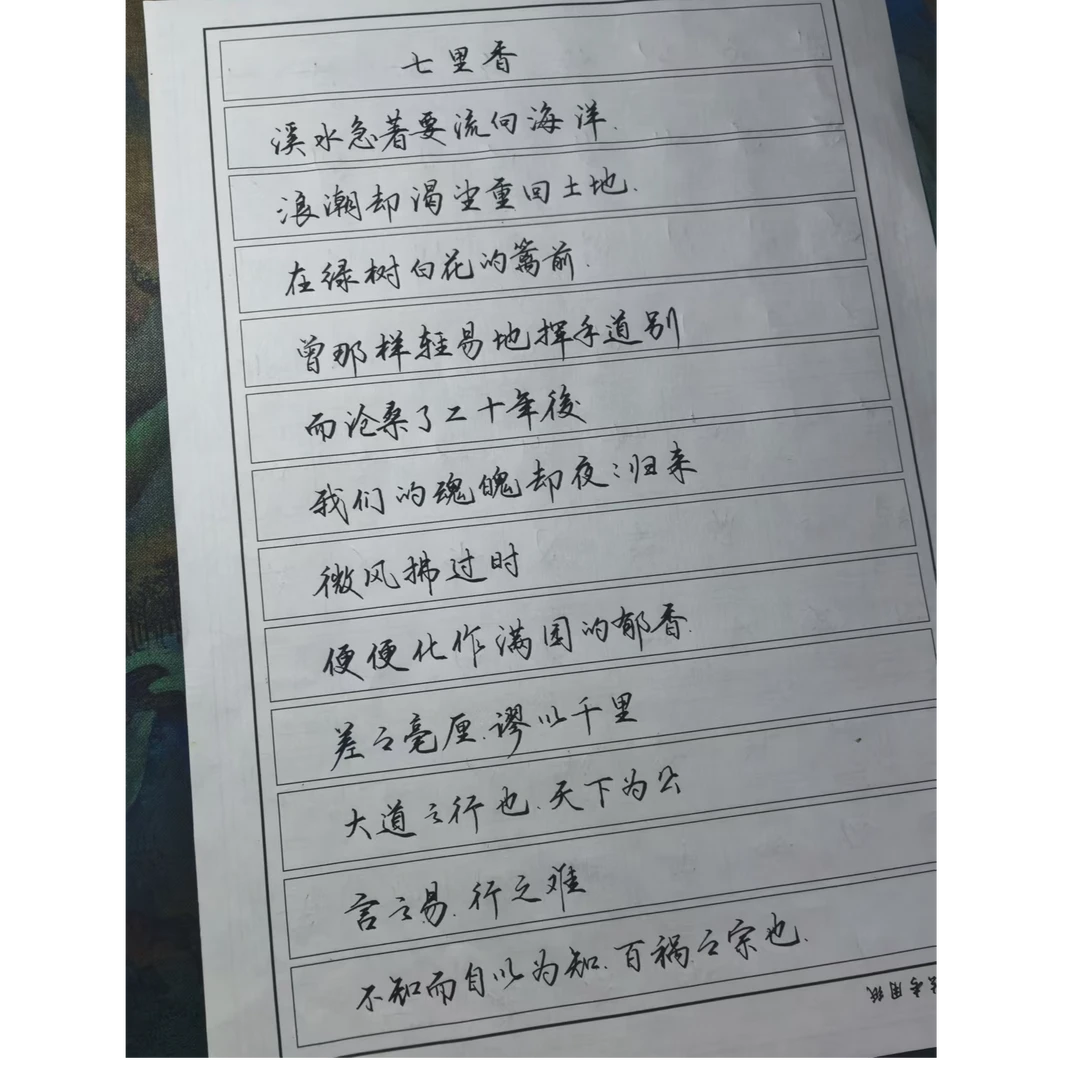 七里香
溪水急著要流向海洋.
浪潮却渴望重回土地.
在绿树白花的篱前.
曾那样轻易地挥手道别
而沧桑了二十年後
我们的魂魄却夜:归来
微风拂过时
便便化作满园的郁香.
差之毫厘.谬以千里
大道之行也.天下为公
言之易.行之难
不知而自以为知.百祸之宗也.
专用纸